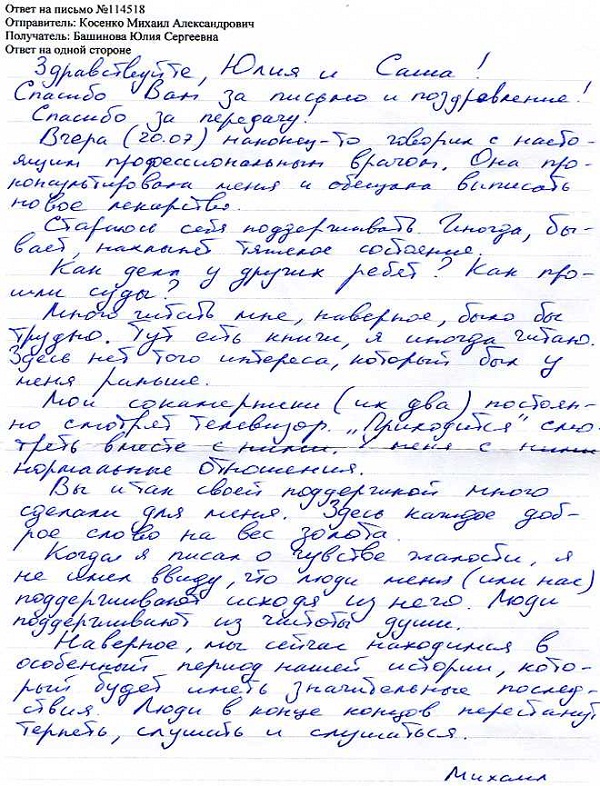 Ответ на письмо №114518
Отправитель: Косенко Михаил Александрович
Получатель: Башинова Юлия Сергеевна
Ответ на одной стороне
Здравствуйте, Юлия и Саша!
Спасибо Вам за письмо и поздравление!
Спасибо за передачу!
Вчера (20.07) наконец-то говорил с насто-
ящим профессиональным врачом. Она про-
консультировала меня и обещала выписать
новое лекарство.
Стараюсь себя поддерживать. Иногда, бы-
вает, нахлынет тяжелое состояние.
Как дела у других ребят? Как про-
шли суды?
Много читать мне, наверное, было бы
трудно. Тут есть книги, я иногда читаю.
Здесь нет того интереса, который был у
меня раньше.
Мои сокамерники (их два) постоян-
но смотрят телевизор. „Приходится" смо-
треть вместе с ними. У меня с ними
нормальные отношения.
Вы и так своей поддержкой много
сделали для меня. Здесь каждое доб-
рое слово на вес золота.
Когда я писал о чувстве жалости, я
не имел ввиду, что люди меня (или нас)
поддерживают исходя из него. Люди
поддерживают из чистоты души.
Наверное, мы сейчас находимся в
особенный период нашей истории, кото-
рый будет иметь значительные послед-
ствия. Люди в конце концов перестанут
терпеть, слушать и слушаться.
Михаил